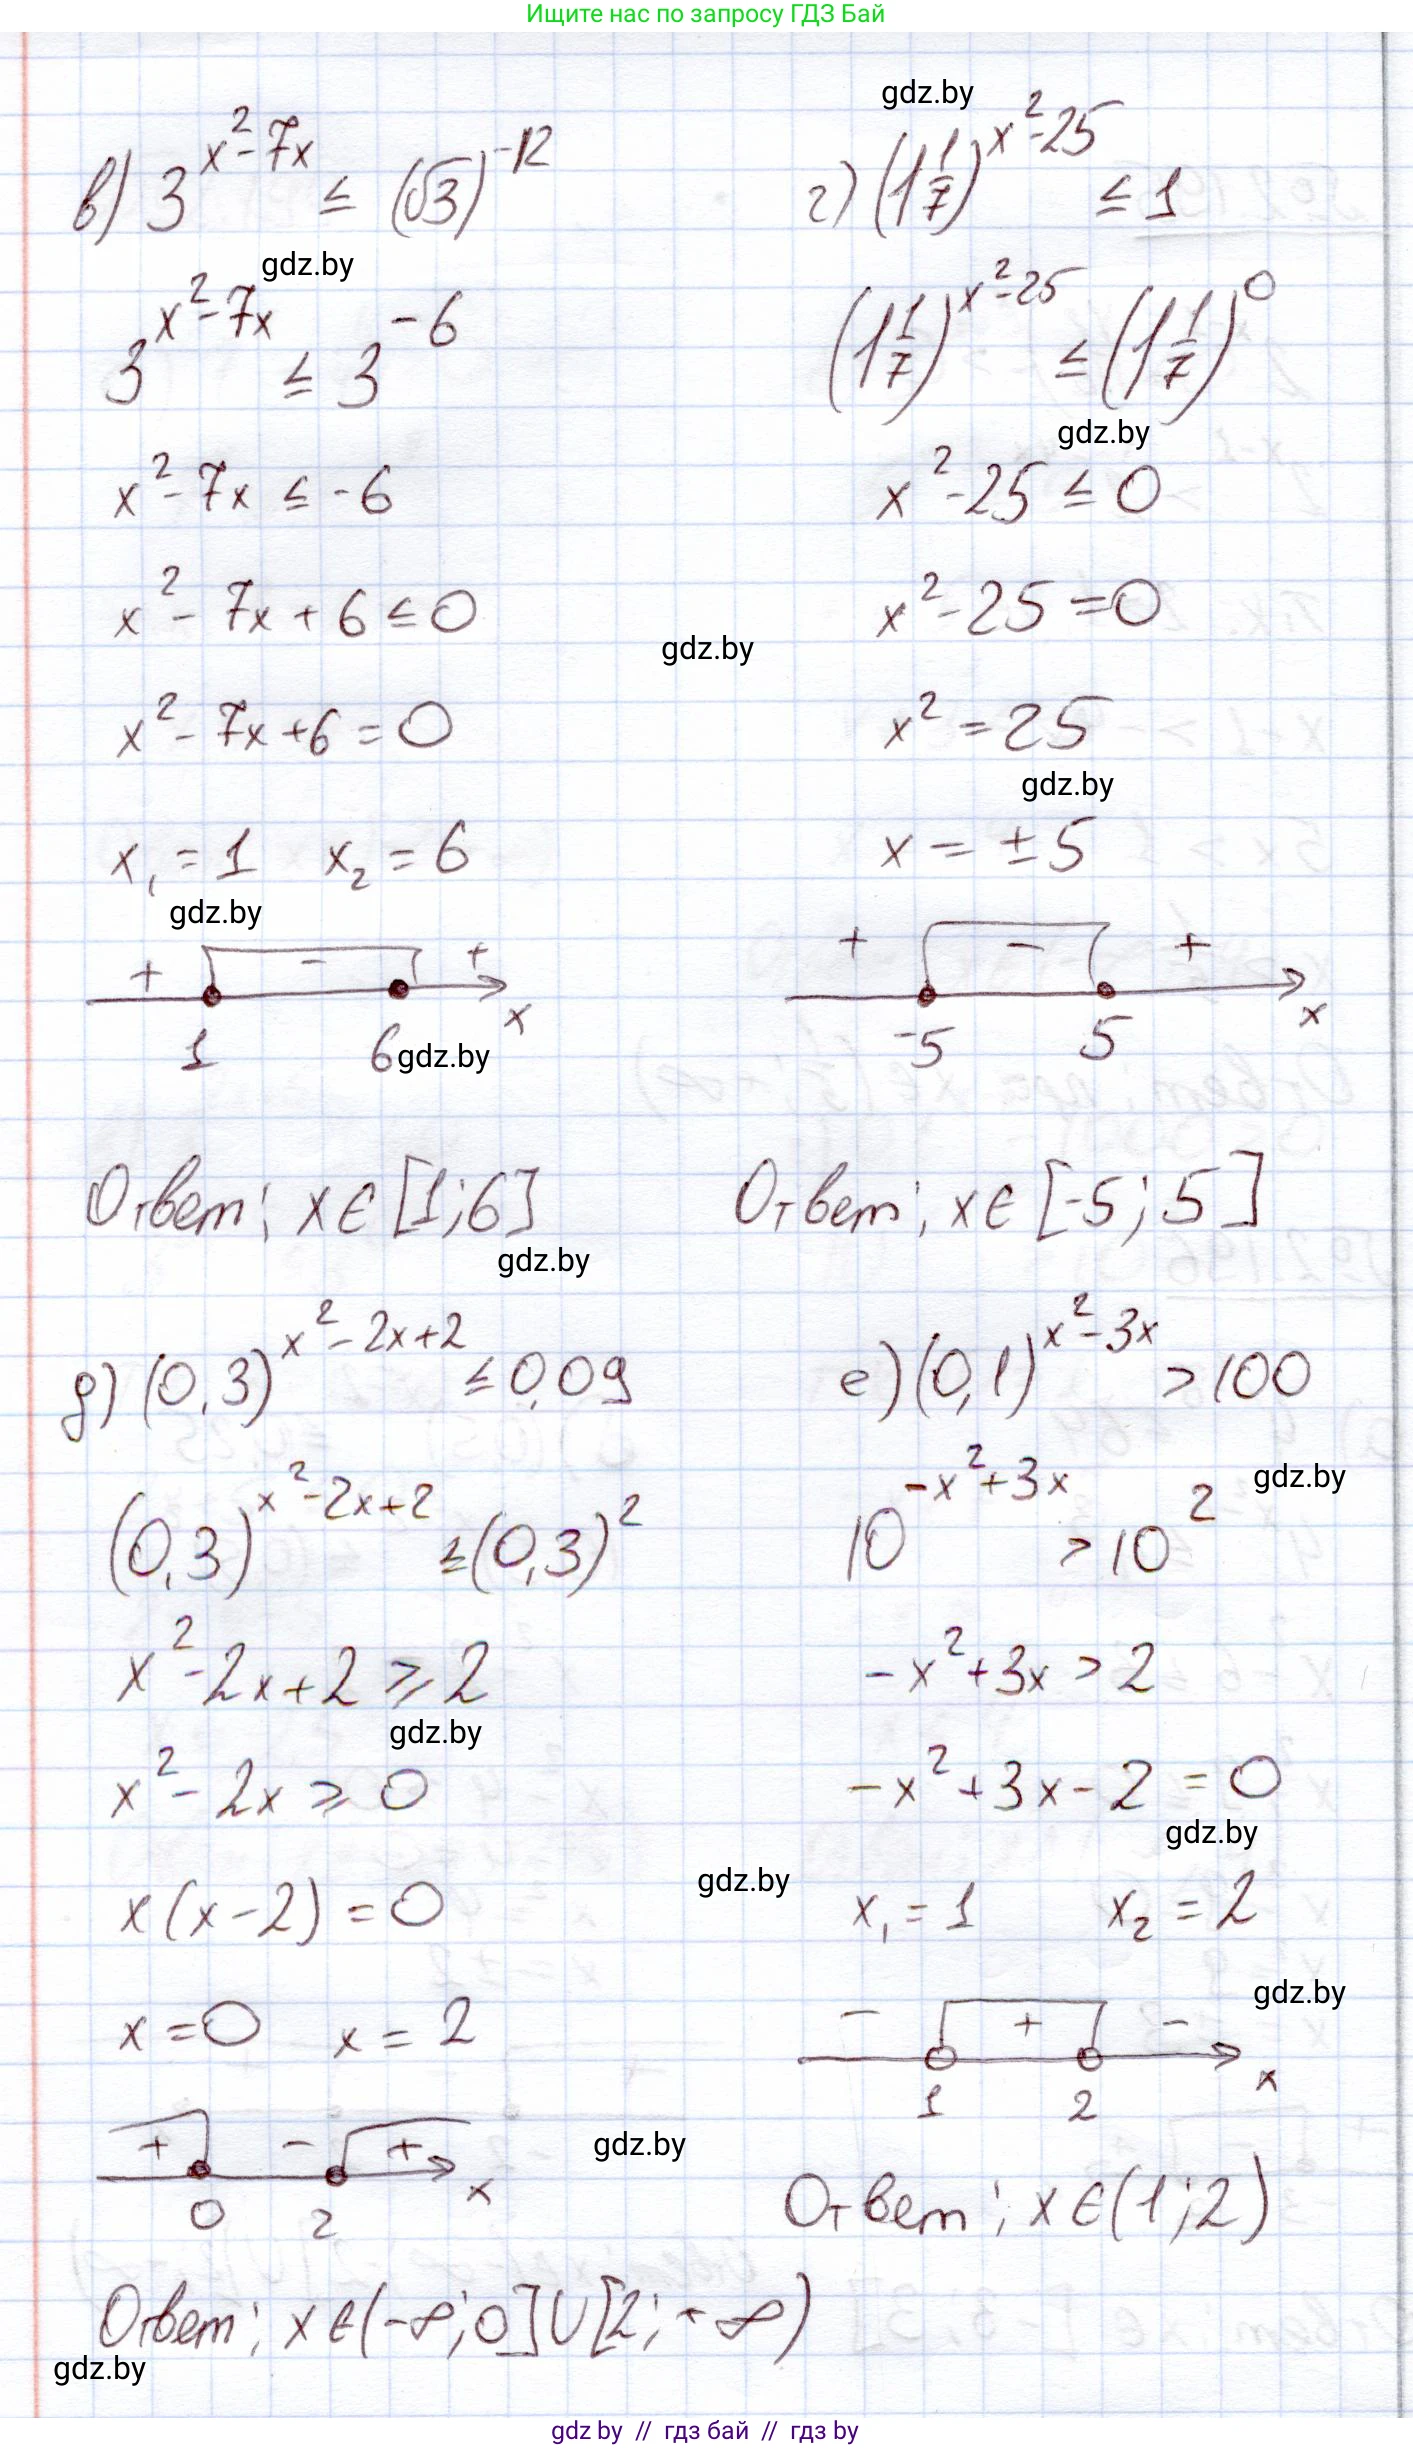 Ищите нас по запросу ГДЗ Бай
gdz.by
в) 3^(x²-7x) ≤ (√3)^(-12)
gdz.by
3^(x²-7x) ≤ 3^(-6)
x²-7x ≤ -6
x²-7x+6 ≤ 0
x²-7x+6=0
x₁=1 x₂=6
gdz.by
+ - +
1 6 x
gdz.by
Ответ: x∈[1;6]
gdz.by
г) (1 1/7)^(x²-25) ≤ 1
(1 1/7)^(x²-25) ≤ (1 1/7)^0
gdz.by
x²-25 ≤ 0
x²-25=0
gdz.by
x²=25
gdz.by
x=±5
+ - +
-5 5 x
Ответ: x∈[-5;5]
д) (0,3)^(x²-2x+2) ≤ 0,09
(0,3)^(x²-2x+2) ≤ (0,3)²
x²-2x+2 ≥ 2
gdz.by
x²-2x ≥ 0
x(x-2)=0
gdz.by
x=0 x=2
+ - +
0 2 x
gdz.by
Ответ: x∈(-∞;0]∪[2;+∞)
gdz.by
е) (0,1)^(x²-3x) > 100
gdz.by
10^(-x²+3x) > 10²
-x²+3x > 2
-x²+3x-2=0
gdz.by
x₁=1 x₂=2
gdz.by
- + -
1 2 x
Ответ: x∈(1;2)
gdz by // гдз бай // гдз by